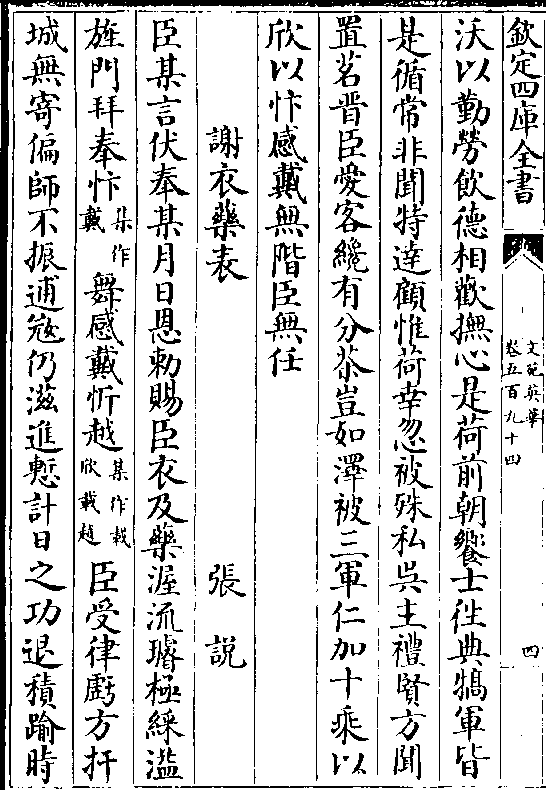 欽定四庫全書
文苑英華
卷五百九十四
四
沃以勤勞飲德相歡撫心是荷前朝饗士往典犒軍皆
是循常非聞特達顧惟荷幸忽被殊私吳主禮賢方聞
置茗晉臣愛客纔有分茶豈如澤被三軍仁加十乘以
欣以忭感戴無階臣無任
謝衣藥表 張說
臣某言伏奉某月日恩勅賜臣衣及藥渥流璿極綵濫
旌門拜奉忭集作戴舞感戴忻越集作載欣載趍臣受律虧方扞
城無寄偏師不振逋寇仍滋進慙計日之功退積踰時